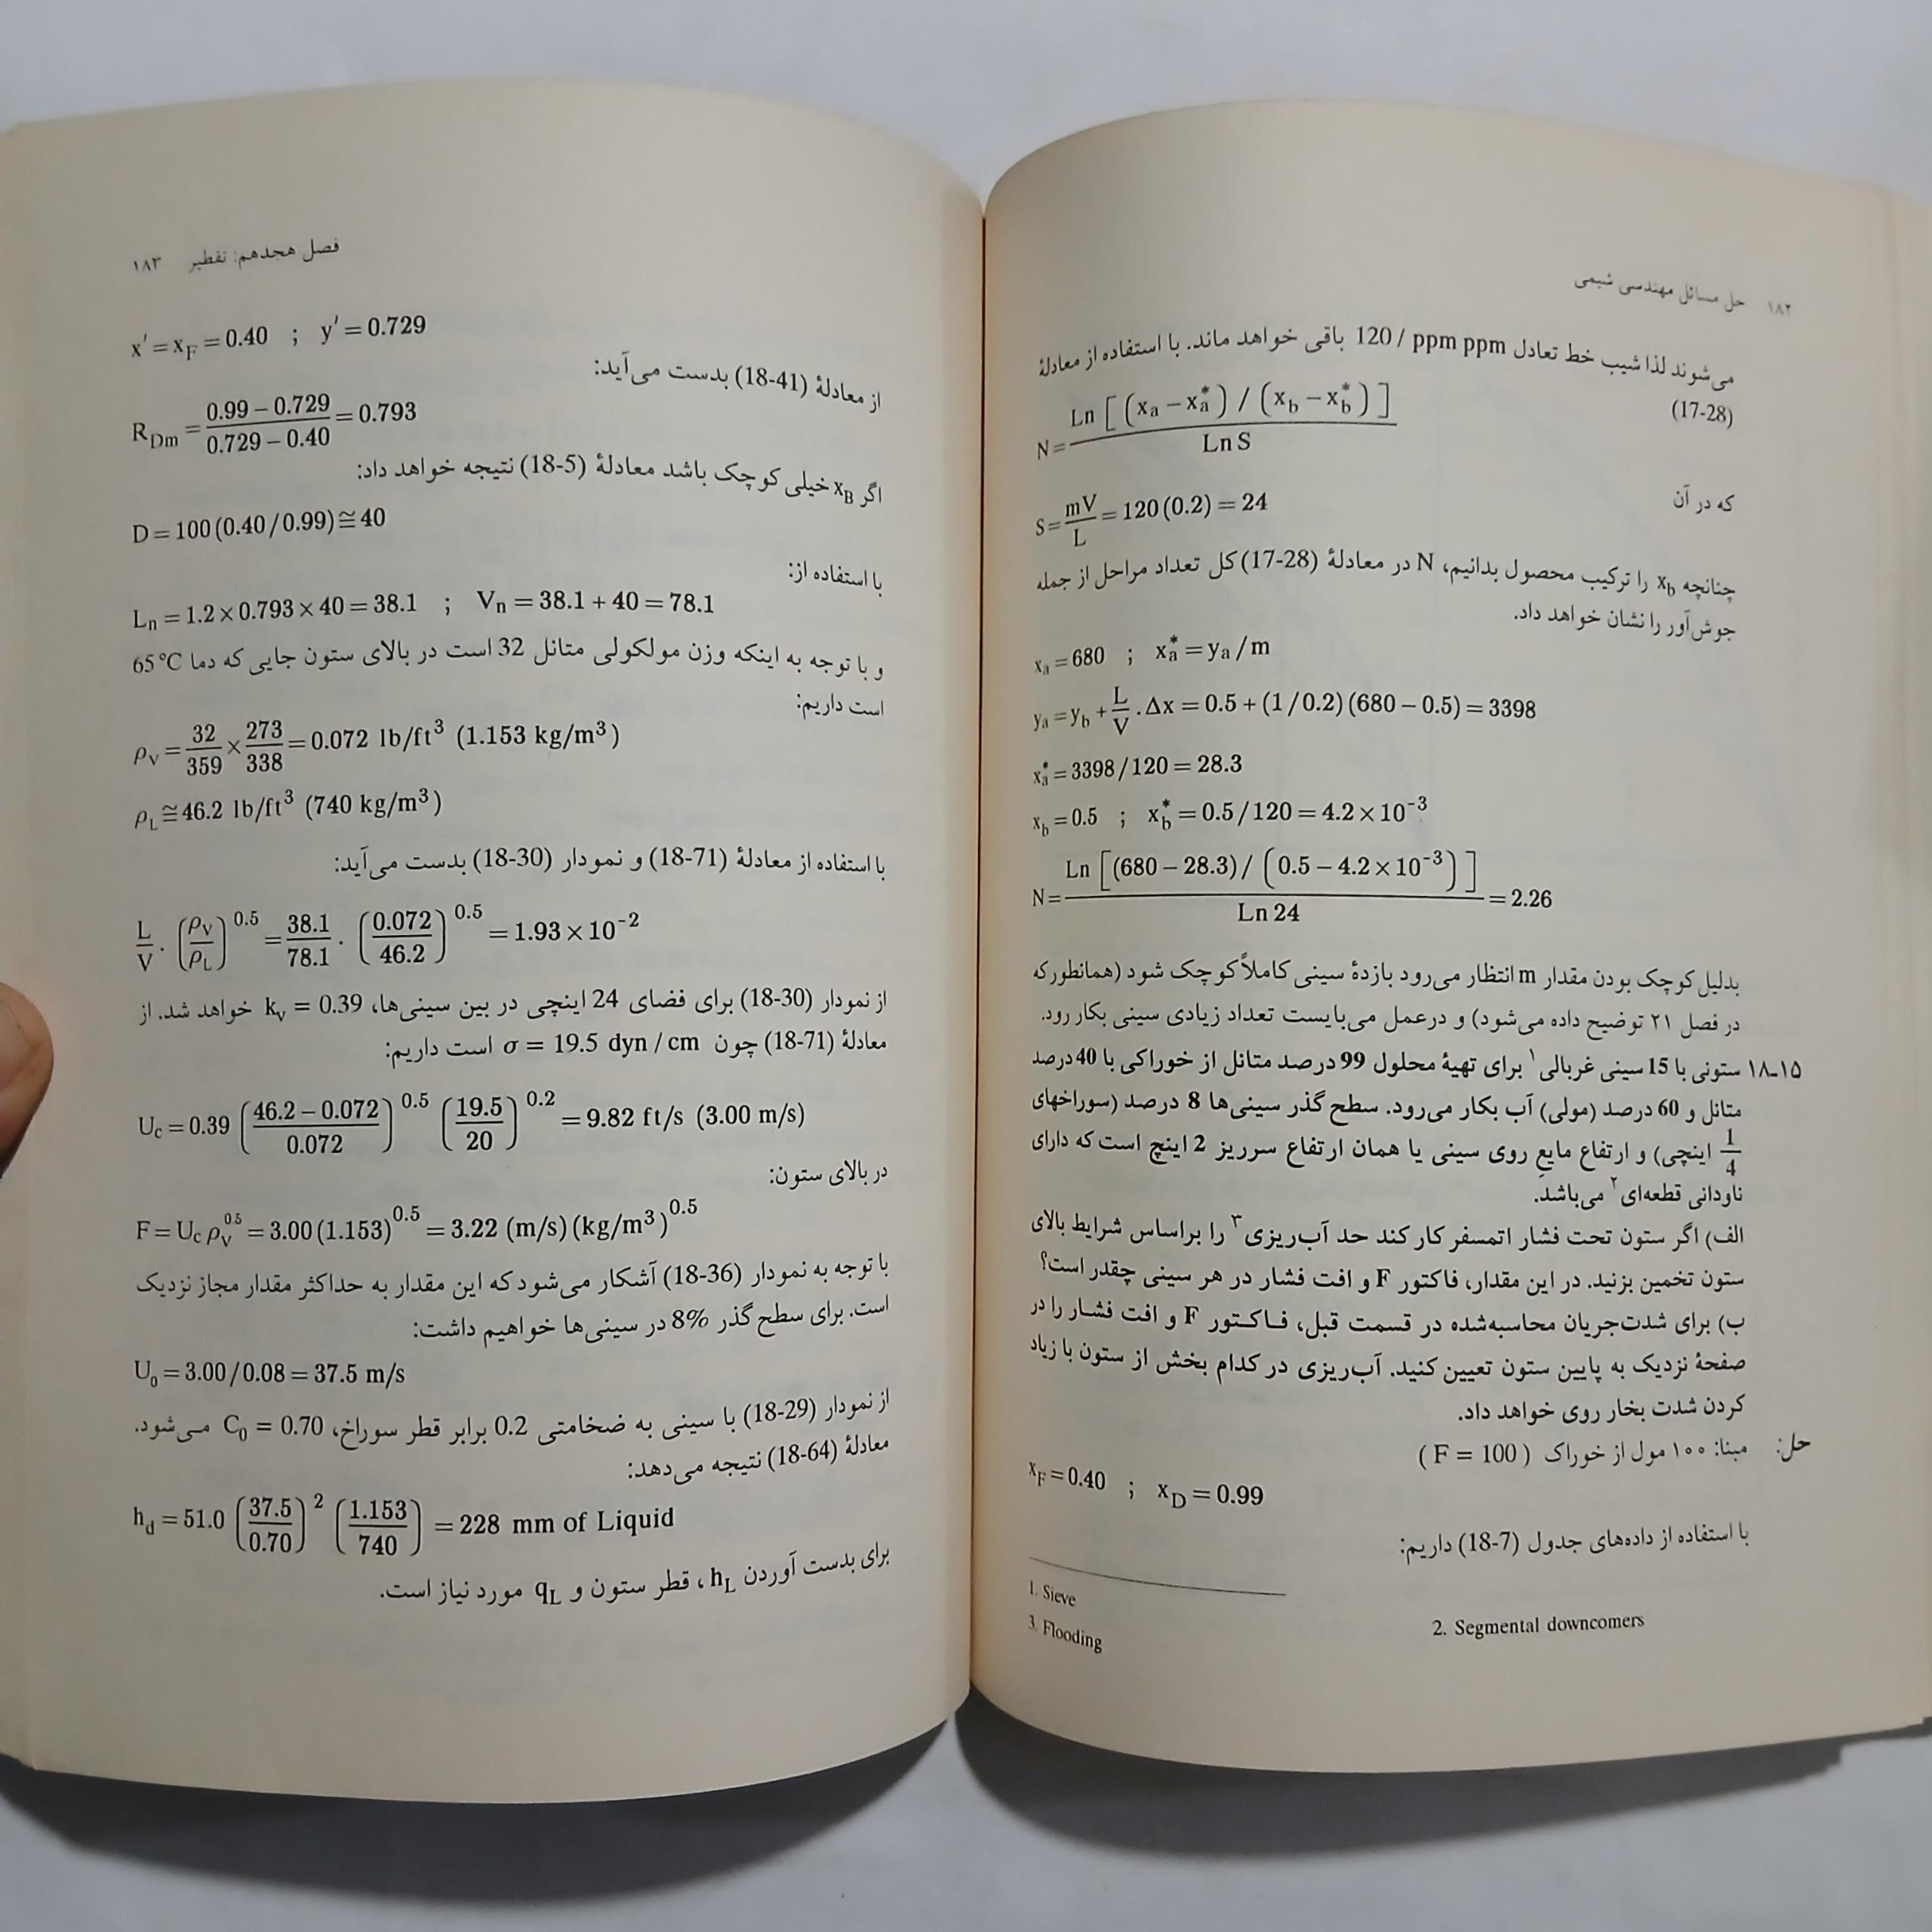 ۱۸۲ حل مسائل مهندسی شیمی
می‌شوند لذا شیب خط تعادل 120 / ppm ppm باقی خواهد ماند. با استفاده از معادلهٔ
(17-28)
N = Ln [ (xa − xa*) / (xb − xb*) ] / Ln S
که در آن
S = mV / L = 120 (0.2) = 24
چنانچه xb را ترکیب محصول بدانیم، N در معادلهٔ (17-28) کل تعداد مراحل از جمله
جوش‌آور را نشان خواهد داد.
xa = 680 ; xa* = ya / m
ya = yb + L/V . Δx = 0.5 + (1 / 0.2) (680 − 0.5) = 3398
xa* = 3398 / 120 = 28.3
xb = 0.5 ; xb* = 0.5 / 120 = 4.2 × 10⁻³
N = Ln [ (680 − 28.3) / (0.5 − 4.2 × 10⁻³) ] / Ln 24 = 2.26
بدلیل کوچک بودن مقدار m انتظار می‌رود بازدهٔ سینی کاملاً کوچک شود (همانطورکه
در فصل ۲۱ توضیح داده می‌شود) و درعمل می‌بایست تعداد زیادی سینی بکار رود.
۱۸-۱۵ ستونی با 15 سینی غربالی۱ برای تهیهٔ محلول 99 درصد متانل از خوراکی با 40 درصد
متانل و 60 درصد (مولی) آب بکار می‌رود. سطح گذر سینی‌ها 8 درصد (سوراخهای
1/4 اینچی) و ارتفاع مایع روی سینی یا همان ارتفاع سرریز 2 اینچ است که دارای
ناودانی قطعه‌ای۲ می‌باشد.
الف) اگر ستون تحت فشار اتمسفر کار کند حد آب‌ریزی۳ را براساس شرایط بالای
ستون تخمین بزنید. در این مقدار، فاکتور F و افت فشار در هر سینی چقدر است؟
ب) برای شدت‌جریان محاسبه‌شده در قسمت قبل، فاکتور F و افت فشار را در
صفحهٔ نزدیک به پایین ستون تعیین کنید. آب‌ریزی در کدام بخش از ستون با زیاد
کردن شدت بخار روی خواهد داد.
حل: مبنا: ۱۰۰ مول از خوراک (F = 100)
xF = 0.40 ; xD = 0.99
با استفاده از داده‌های جدول (18-7) داریم:
1. Sieve
2. Segmental downcomers
3. Flooding
فصل هجدهم: تقطیر ۱۸۳
x′ = xF = 0.40 ; y′ = 0.729
از معادلهٔ (18-41) بدست می‌آید:
RDm = (0.99 − 0.729) / (0.729 − 0.40) = 0.793
اگر xB خیلی کوچک باشد معادلهٔ (18-5) نتیجه خواهد داد:
D = 100 (0.40 / 0.99) ≅ 40
با استفاده از:
Ln = 1.2 × 0.793 × 40 = 38.1 ; Vn = 38.1 + 40 = 78.1
و با توجه به اینکه وزن مولکولی متانل 32 است در بالای ستون جایی که دما 65 °C
است داریم:
ρV = 32/359 × 273/338 = 0.072 lb/ft³ (1.153 kg/m³)
ρL ≅ 46.2 lb/ft³ (740 kg/m³)
با استفاده از معادلهٔ (18-71) و نمودار (18-30) بدست می‌آید:
L/V . (ρV/ρL)^0.5 = 38.1/78.1 . (0.072/46.2)^0.5 = 1.93 × 10⁻²
از نمودار (18-30) برای فضای 24 اینچی در بین سینی‌ها، kv = 0.39 خواهد شد. از
معادلهٔ (18-71) چون σ = 19.5 dyn / cm است داریم:
Uc = 0.39 ((46.2 − 0.072) / 0.072)^0.5 (19.5/20)^0.2 = 9.82 ft/s (3.00 m/s)
در بالای ستون:
F = Uc ρV^0.5 = 3.00 (1.153)^0.5 = 3.22 (m/s) (kg/m³)^0.5
با توجه به نمودار (18-36) آشکار می‌شود که این مقدار به حداکثر مقدار مجاز نزدیک
است. برای سطح گذر 8% در سینی‌ها خواهیم داشت:
U0 = 3.00 / 0.08 = 37.5 m/s
از نمودار (18-29) با سینی به ضخامتی 0.2 برابر قطر سوراخ، C0 = 0.70 می‌شود.
معادلهٔ (18-64) نتیجه می‌دهد:
hd = 51.0 (37.5/0.70)² (1.153/740) = 228 mm of Liquid
برای بدست آوردن hL، قطر ستون و qL مورد نیاز است.